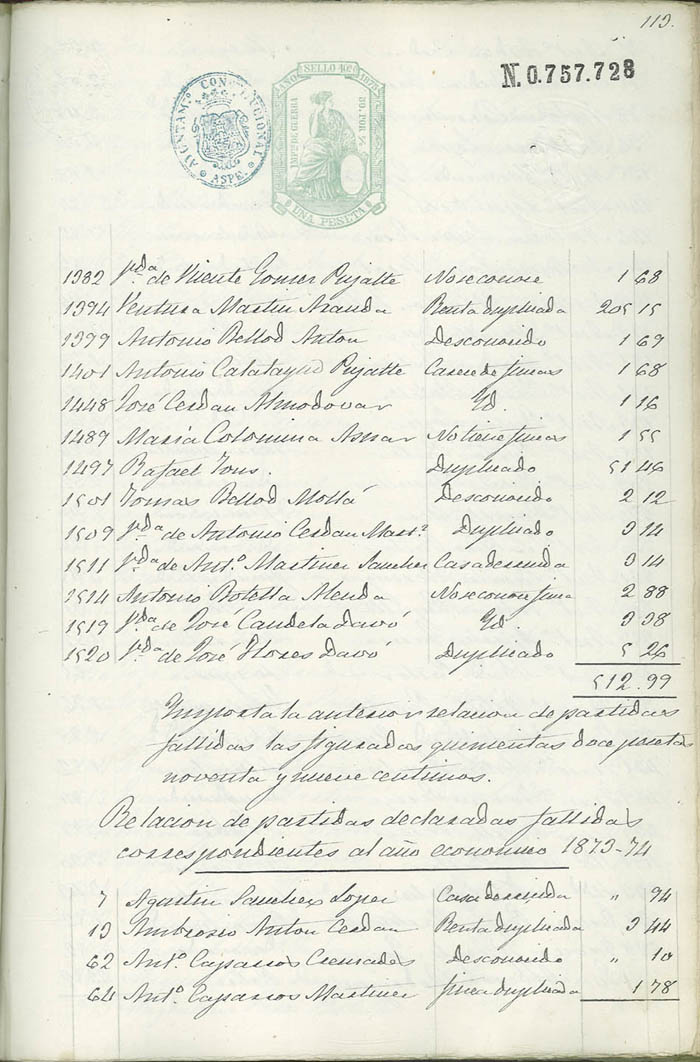 113.
N. 0.757.728
AYUNTAM.º CONSTITUCIONAL
ASPE.
SELLO 10º
AÑO 1875
IMP.º DE GUERRA
50. POR %
UNA PESETA
1382 V.da de Vicente Gomez Pujalte No se conoce 1 68
1394 Ventura Martin Aranda Renta duplicada 205 15
1399 Antonio Bellod Anton Desconocido 1 69
1401 Antonio Calatayud Pujalte Carece de fincas 1 68
1448 José Cerdan Almodovar Yd. 1 16
1489 Maria Colomina Aznar No tiene fincas 1 55
1497 Rafael Tous. Duplicado 51 46
1501 Tomas Bellod Mollá Desconocido 2 12
1509 V.da de Antonio Cerdan Mart.z Duplicado 3 14
1511 V.da de Ant.º Martinez Sanchez Casa derruida 3 14
1514 Antonio Botella Alenda No se conoce finca 2 88
1519 V.da de José Candela Davó Yd. 3 38
1520 V.da de José Flores Davó Duplicado 5 26
512.99
Importa la anterior relacion de partidas
fallidas las figuradas quinientas doce pesetas
noventa y nueve centimos.
Relacion de partidas declaradas fallidas
correspondientes al año economico 1873-74
7 Agustin Sanchez Lopez Casa derruida " 94
13 Ambrosio Anton Cerdan Renta duplicada 3 44
62 Ant.º Caparros Cremades Desconocido " 10
64 Ant.º Caparros Martinez finca duplicada 1 78